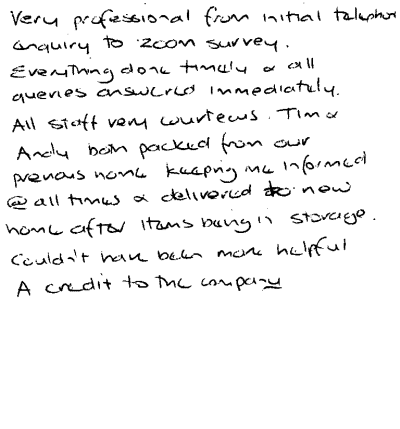 Very professional from initial telephone
enquiry to zoom survey.
Everything done timely & all
queries answered immediately.
All staff very courteous. Tim &
Andy both packed from our
previous home keeping me informed
@ all times & delivered to new
home after items being in storage.
Couldn't have been more helpful
A credit to the company